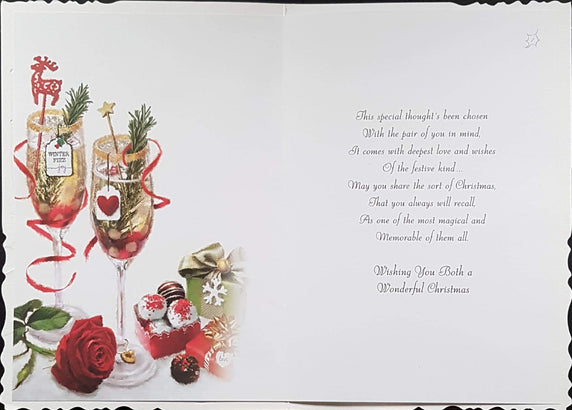 WINTER
FIZZ
This special thought's been chosen
With the pair of you in mind,
It comes with deepest love and wishes
Of the festive kind...
May you share the sort of Christmas,
That you always will recall,
As one of the most magical and
Memorable of them all.
Wishing You Both a
Wonderful Christmas